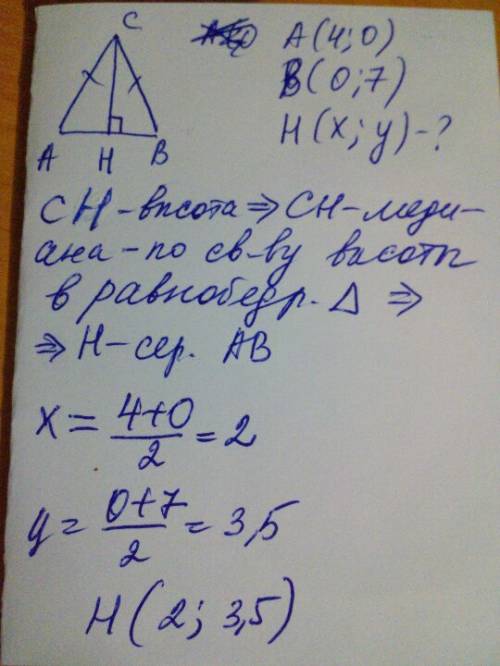 C
A(4;0)
B(0;7)
H(x;y)-?
A H B
CH-высота⇒CH-меди-
ана-по св-ву высоты
в равнобедр. △ ⇒
⇒ H-сер. AB
x = (4+0)/2 = 2
y = (0+7)/2 = 3,5
H(2; 3,5)